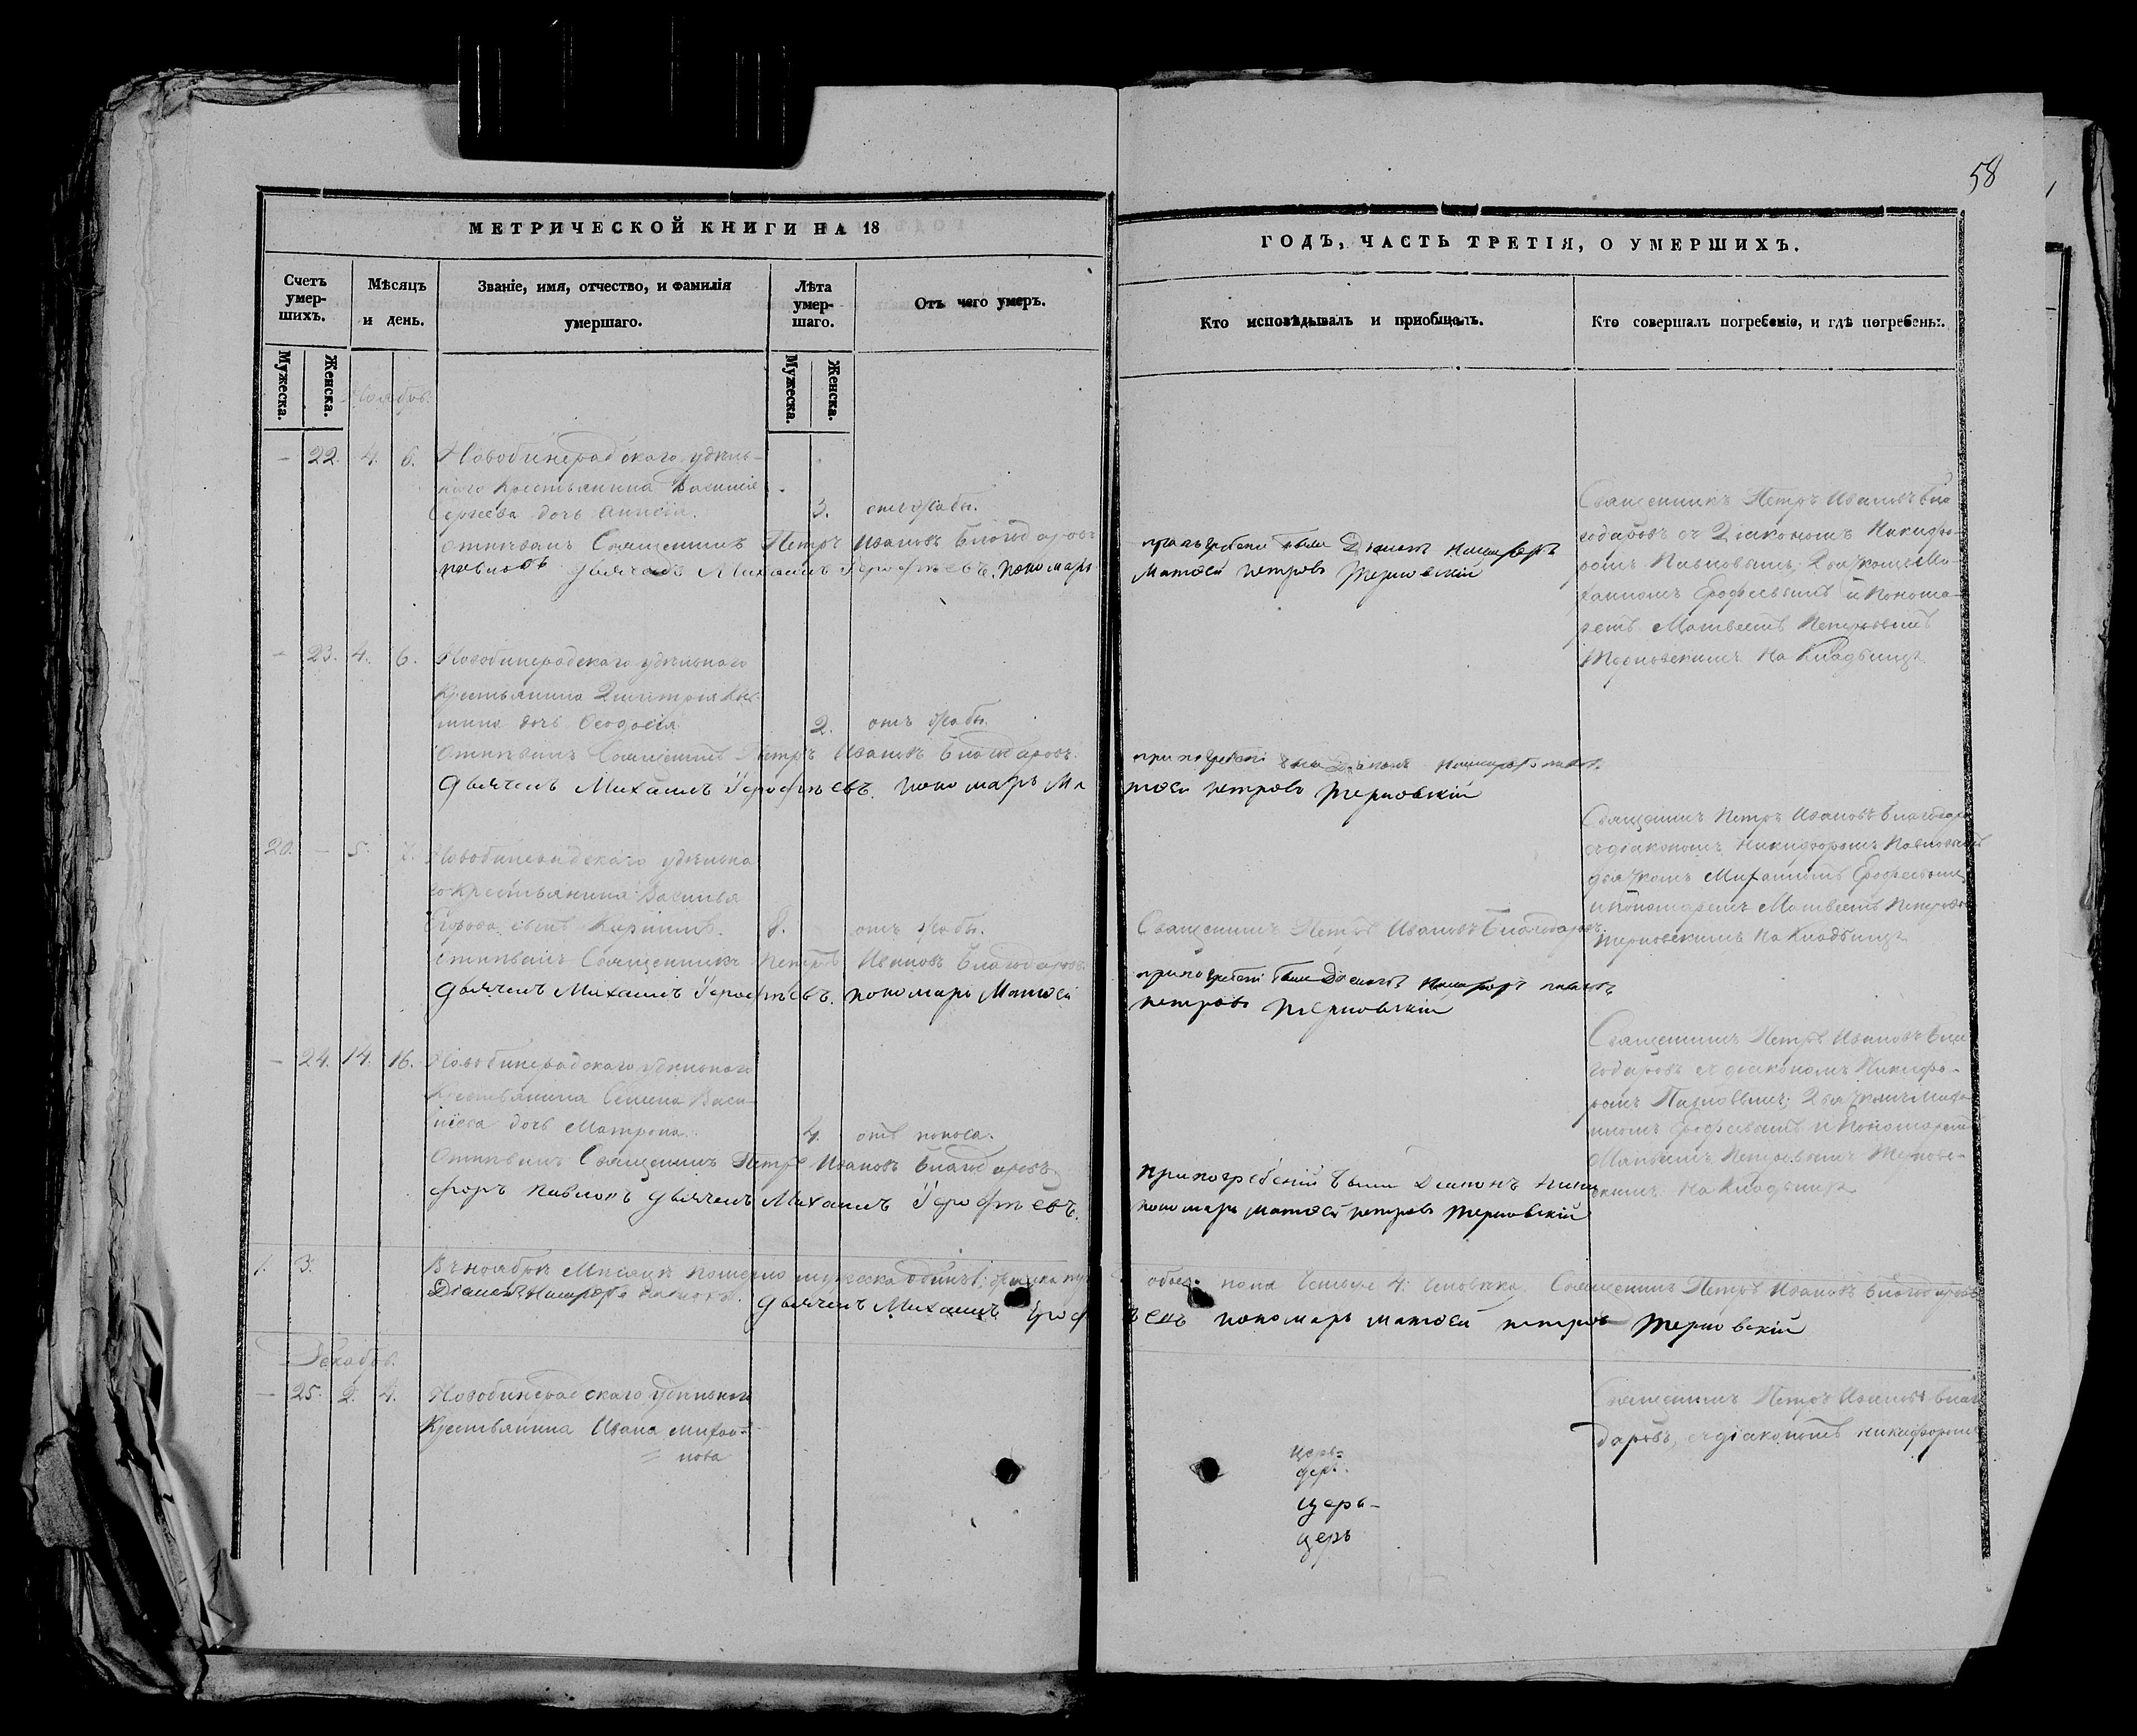 58
МЕТРИЧЕСКОЙ КНИГИ НА 18
ГОДЪ, ЧАСТЬ ТРЕТІЯ, О УМЕРШИХЪ.
Счетъ умер-
шихъ.
Мѣсяцъ
и день.
Званіе, имя, отчество, и фамилія
умершаго.
Лѣта
умер-
шаго.
Отъ чего умеръ.
Кто исповѣдывалъ и пріобщалъ.
Кто совершалъ погребеніе, и гдѣ погребены.
Мужеска.
Женска.
Мужеска.
Женска.
Ноябрь.
– 22. 4. 6. Новобинарадскаго удѣль-
наго крестьянина Василія
Сергѣева дочь Анисія. 3. отъ жабы.
отпѣвалъ Священникъ Петръ Ивановъ Благодаровъ
павловъ дьячекъ Михаилъ Іерофѣевъ. пономарь
при погребени были Діаконъ Никифоръ
Матѳей петровъ Терновскій
Священникъ Петръ Ивановъ Бла
годаровъ съ Діакономъ Никифо-
ромъ Павловымъ, Дьячкомъ Ми-
хаиломъ Ерофеевымъ и Понома-
ремъ Матвеемъ Петровымъ
Терновскимъ на Кладбищѣ
– 23. 4. 6. Новобинарадскаго удѣльнаго
Крестьянина Димитрія
дочь Ѳеодосія 2. отъ жабы.
отпѣвалъ Священникъ Петръ Ивановъ Благодаровъ.
дьячекъ Михаилъ Іерофѣевъ. пономарь Ма
при погребеніи были Діаконъ Никифоръ
тѳей петровъ Терновскій
20. – 5. 7. Новобинарадскаго удѣльна
го крестьянина Василья
Егорова сынъ 8. отъ жабы.
отпѣвалъ Священникъ Петръ Ивановъ Благодаровъ.
дьячекъ Михаилъ Іерофѣевъ. пономарь Матѳей
Священникъ Петръ Ивановъ Благодаровъ.
при погребеніи были Діаконъ Никифоръ павловъ
петровъ Терновскій
Священникъ Петръ Ивановъ Благодаро
съ діакономъ Никифоромъ Павловымъ
дьячкомъ Михаиломъ Ерофеевымъ
и пономаремъ Матвеемъ Петров
Терновскимъ на Кладбищѣ
– 24. 14. 16. Новобинарадскаго удѣльнаго
Крестьянина Семена Васи-
лїева дочь Матрона. 4. отъ поноса.
отпѣвалъ Священникъ Петръ Ивановъ Благодаровъ
форъ павловъ дьячекъ Михаилъ Іерофѣевъ.
при погребеній были Діаконъ Ники
пономарь матѳей петровъ Терновскій
Священникъ Петръ Ивановъ Бла
годаровъ съ діакономъ Никифо-
ромъ Павловымъ, Дьячкомъ Миха-
иломъ Ерофеевымъ и Пономаремъ
Матвеемъ Петровымъ Терновс-
кимъ на Кладбищѣ
1. 3. Въ ноябрѣ Мѣсяцѣ померло мужеска одинъ 1; женска три
обоего пола четыре 4: человѣка. Священникъ Петръ Ивановъ Благодаровъ
Діаконъ Никифоръ павловъ. дьячекъ Михаилъ Іероф
ѣевъ пономарь матѳей петровъ Терновскій
Декабрь.
– 25. 2. 4. Новобинарадскаго удѣльнаго
Крестьянина Ивана Михаи-
лова
Священникъ Петръ Ивановъ Благо
даровъ, съ діакономъ никифоромъ
церь-
церь-
церь